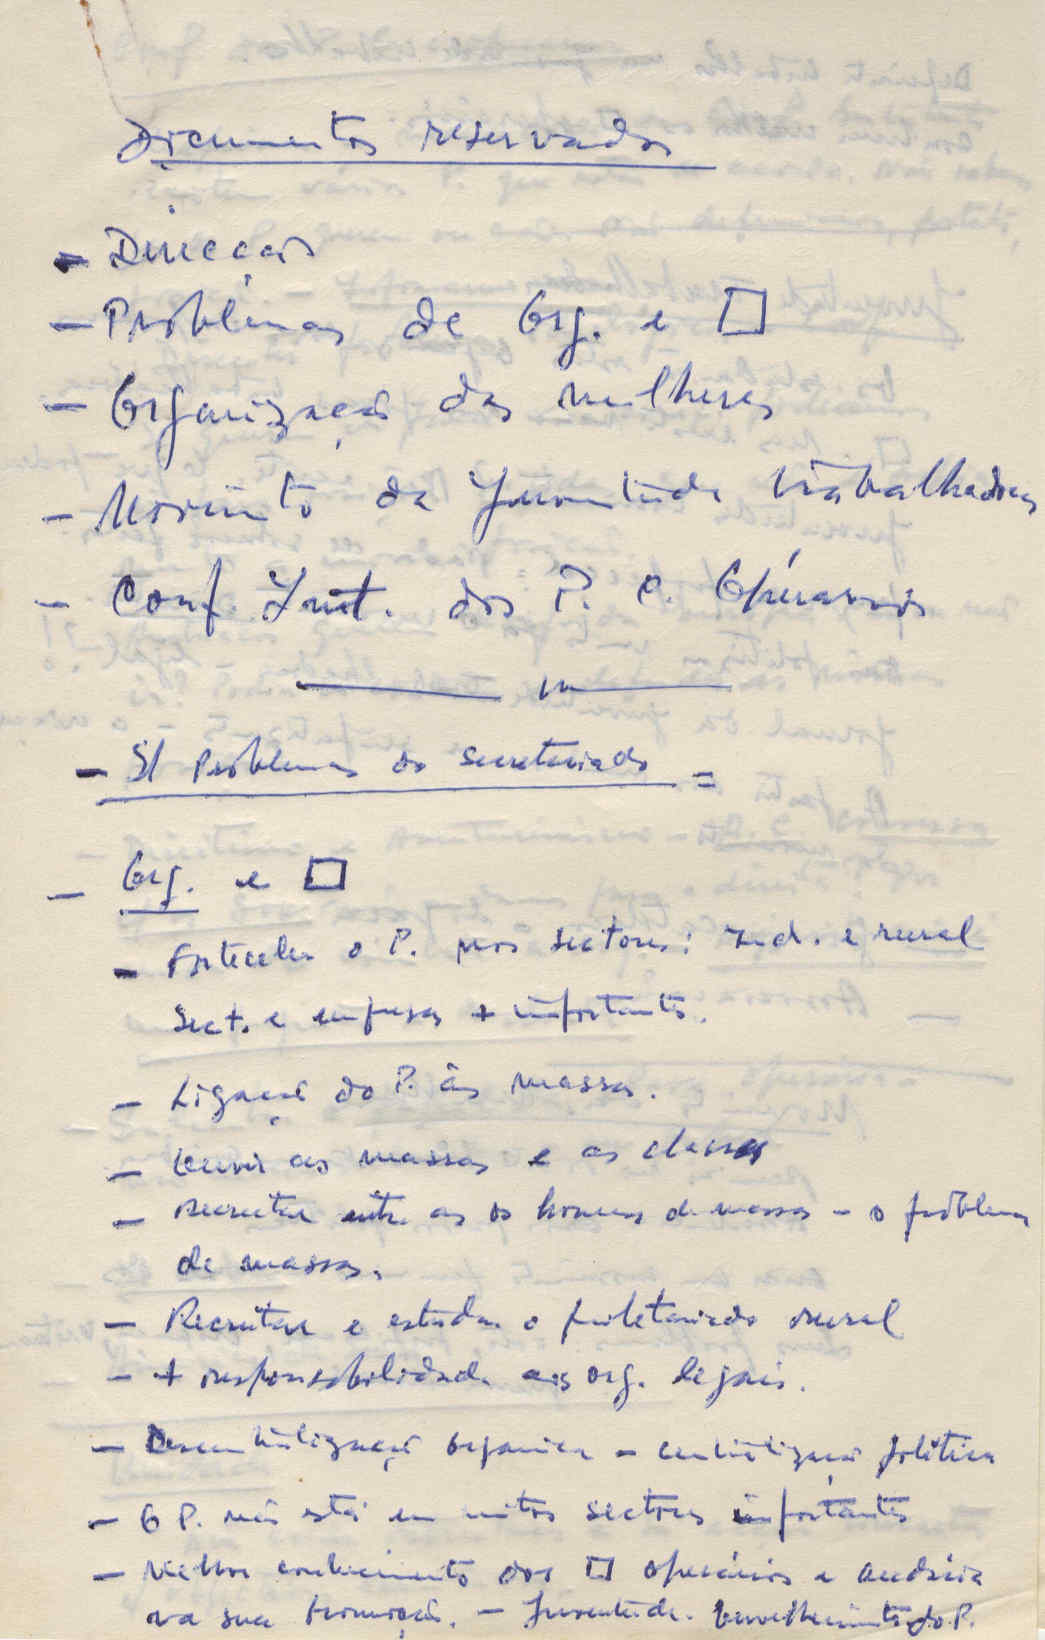 Documentos reservados
- Direcção
- Problemas de Org. e □
- Organização das mulheres
- Movimento da Juventude trabalhadora
- Conf. Int. dos P. C. Operários
- S/ Problemas do Secretariado =
- Org. e □
- Fortalecer o P. nos sectores: Ind. e rural
Sect. e empresas + importantes.
- Ligação do P. às massas.
- Ouvir as massas e as classes
- Recrutar entre os homens de massas - o problema
de massas.
- Recrutar e estudar o proletariado rural
- + responsabilidade às org. legais.
- Descentralização orgânica - centralização política
- O P. não está em muitos sectores importantes
- Melhor conhecimento dos □ operários e audácia
na sua promoção. - Juventude. Envelhecimento do P.